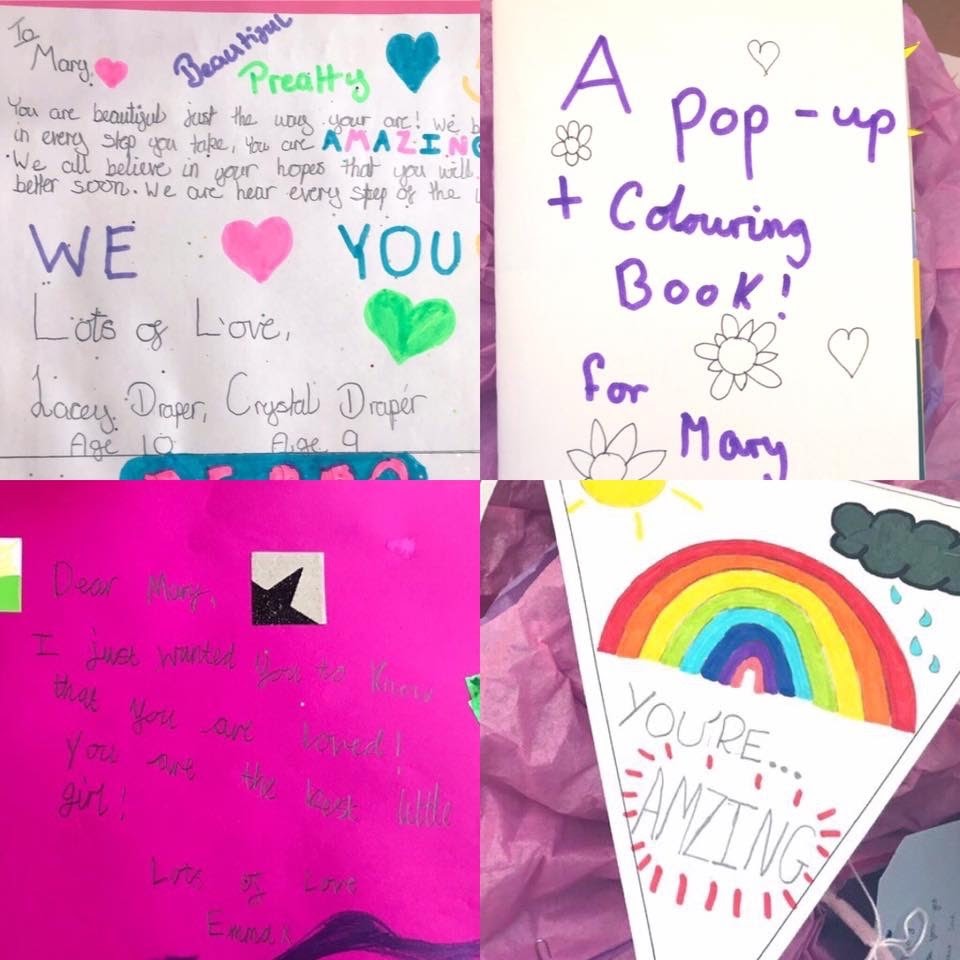 To
Mary,
Beautiful
Preatty
You are beautiful just the way your are! We b
in every step you take, You are AMAZING
We all believe in your hopes that you will
better soon. We are hear every step of the
WE YOU
Lots of Love,
Lacey Draper, Crystal Draper
Age 10 Age 9
A
Pop-up
+ Colouring
Book!
for
Mary
Dear Mary,
I just wanted you to know
that you are loved!
You are the best little
girl!
Lots of Love
Emma x
YOU'RE...
AMZING